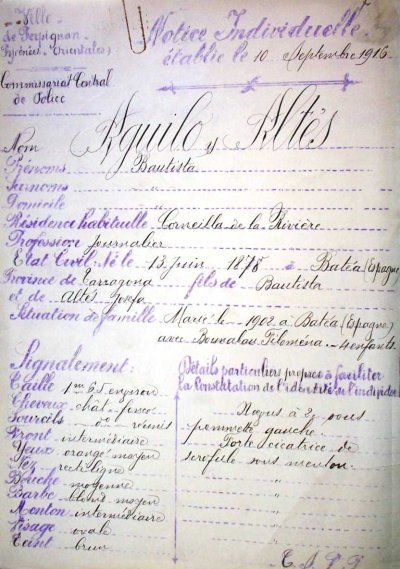 Ville
de Perpignan
(Pyrénées-Orientales)
Commissariat Central
de Police
Notice Individuelle
établie le 10 Septembre 1916
Nom Aguilo y Altés
Prénoms Bautista
Surnoms "
Domicile "
Résidence habituelle Corneilla de la Rivière
Profession Journalier
Etat Civil: Né le 13 juin 1875 à Batéa (Espagne)
Province de Tarragona fils de Bautista
et de Altés Josefa
Situation de famille Marié le 1902 à Batéa (Espagne)
avec Filoména - 4 enfants.
Signalement:
Taille 1m 65 environ
Cheveux chat. foncé
Sourcils do réunis
Front intermédiaire
Yeux orangé moyen
Nez rectiligne
Bouche moyenne
Barbe blond moyen
Menton intermédiaire
Visage ovale
Teint brun
Détails particuliers propres à faciliter
la Constatation de l'identité de l'individu
à 2 sous
pommette gauche.
Forte cicatrice de
scrofule sous menton.